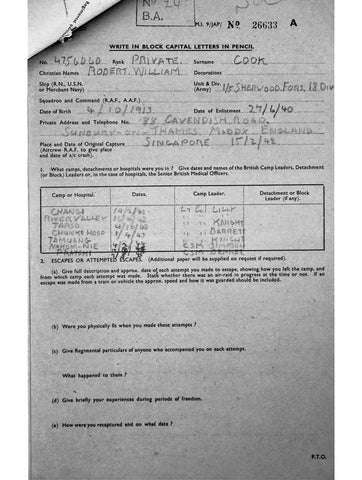 B.A.
M.I. 9/JAP/ No 26633 A
WRITE IN BLOCK CAPITAL LETTERS IN PENCIL
No. 4756060 Rank PRIVATE Surname COOK
Christian Names ROBERT WILLIAM Decorations
Ship (R.N., U.S.N. or Merchant Navy)
Unit & Div. (Army) 1/5 SHERWOOD FORS. 18 DIV
Squadron and Command (R.A.F., A.A.F.)
Date of Birth 4/10/1913 Date of Enlistment 27/6/40
Private Address and Telephone No. 88 CAVENDISH ROAD,
SUNBURY-ON-THAMES, MIDDX ENGLAND
Place and Date of Original Capture SINGAPORE 15/2/42
(Aircrew R.A.F. to give place
and date of a/c crash).
1. What camps, detachments or hospitals were you in? Give dates and names of the British Camp Leaders, Detachment
(or Block) Leaders or, in case of hospitals, the Senior British Medical Officers.
Camp or Hospital. Dates. Camp Leader. Detachment or Block
Leader (if any).
CHANGI LT COL LILLY
RIVER VALLEY
TARSO KNIGHT
CHUNKI HOSP BARRETT
TAMUANG KNIGHT
CSM
PRATCHI CSM
2. ESCAPES OR ATTEMPTED ESCAPES. (Additional paper will be supplied on request if required).
(a) Give full description and approx. date of each attempt you made to escape, showing how you left the camp, and
from which camp each attempt was made. State whether there was an air-raid in progress at the time or not. If an
escape was made from a train or vehicle the approx. speed and how it was guarded should be included.
(b) Were you physically fit when you made these attempts ?
(c) Give Regimental particulars of anyone who accompanied you on each attempt.
What happened to them ?
(d) Give briefly your experiences during periods of freedom.
(e) How were you recaptured and on what date ?
P.T.O.